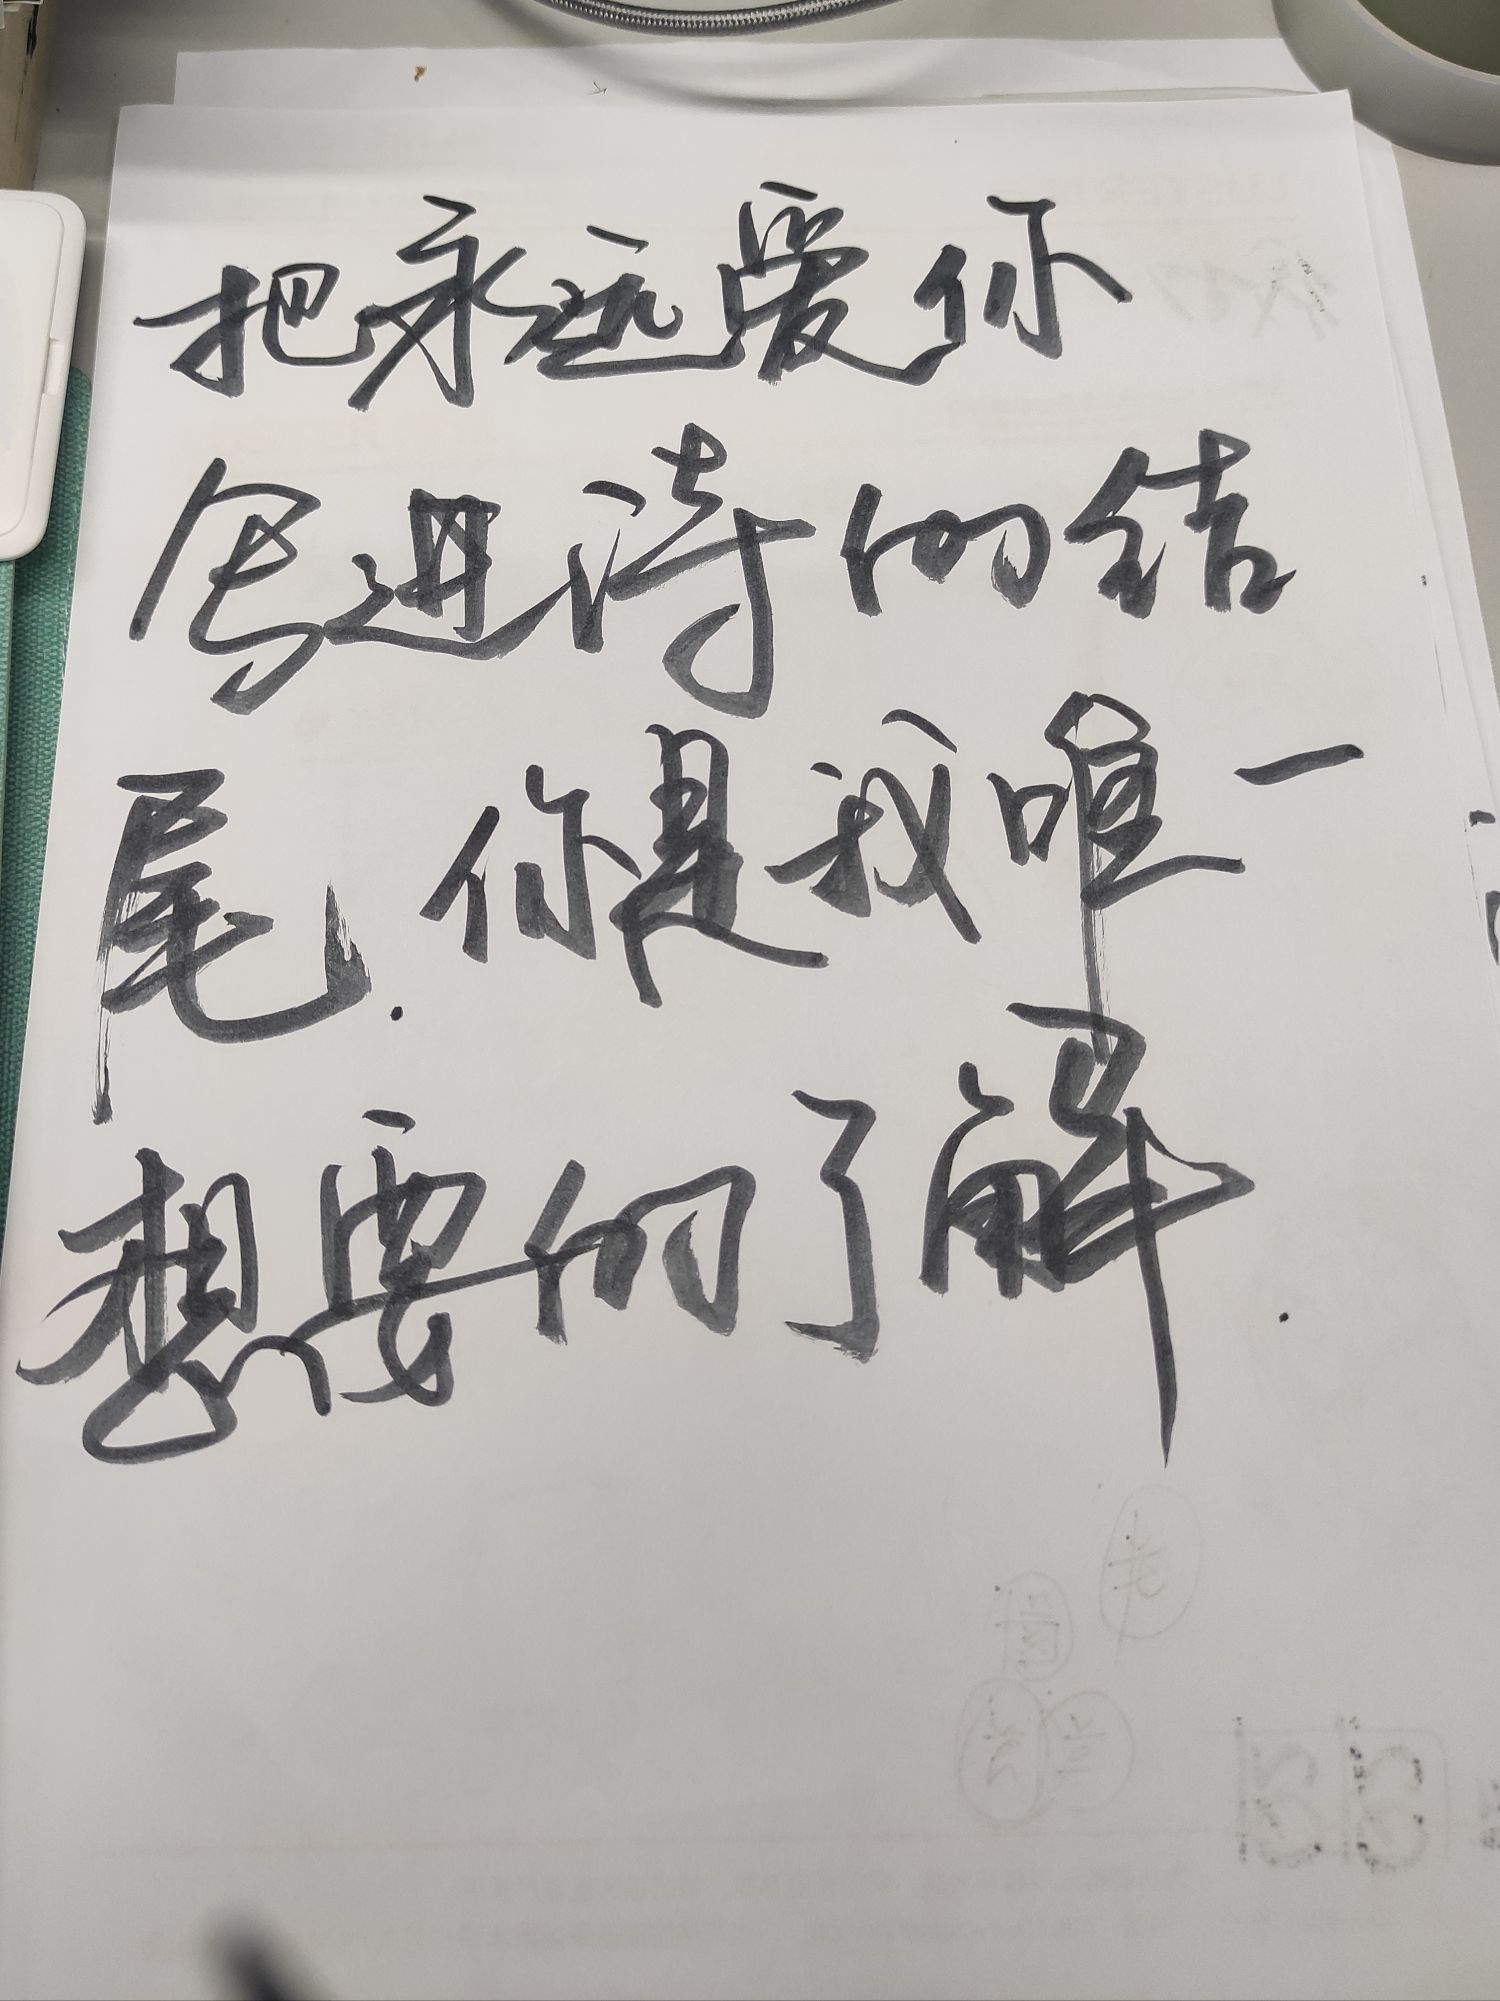 把永远爱你
写进诗的结
尾.你是我唯一
想要的了解.